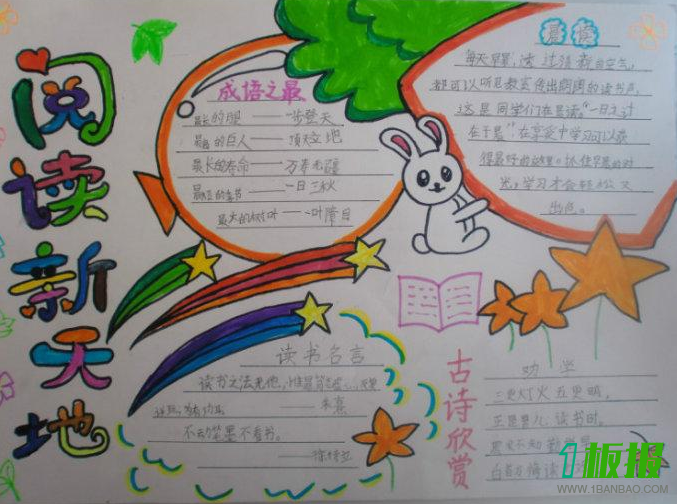 阅读新天地
成语之最
最长的腿——一步登天
最高的巨人——顶天立地
最长的寿命——万寿无疆
最短的季节——一日三秋
最大的树叶——一叶障目
晨读
每天早晨,
都可以听见教室传出朗朗的读书声,
这是同学们在晨读。"一日之计
在于晨"在享受中学习可以获
得最好的效果。抓住早晨的时
光,学习才会轻松又
出色。
读书名言
读书之法无他,
朱熹
不动笔墨不看书。
——徐特立
古诗欣赏
劝学
三更灯火五更鸡,
正是男儿读书时。
黑发不知勤学早
白首方悔读
1板报
WWW.1BANBAO.COM